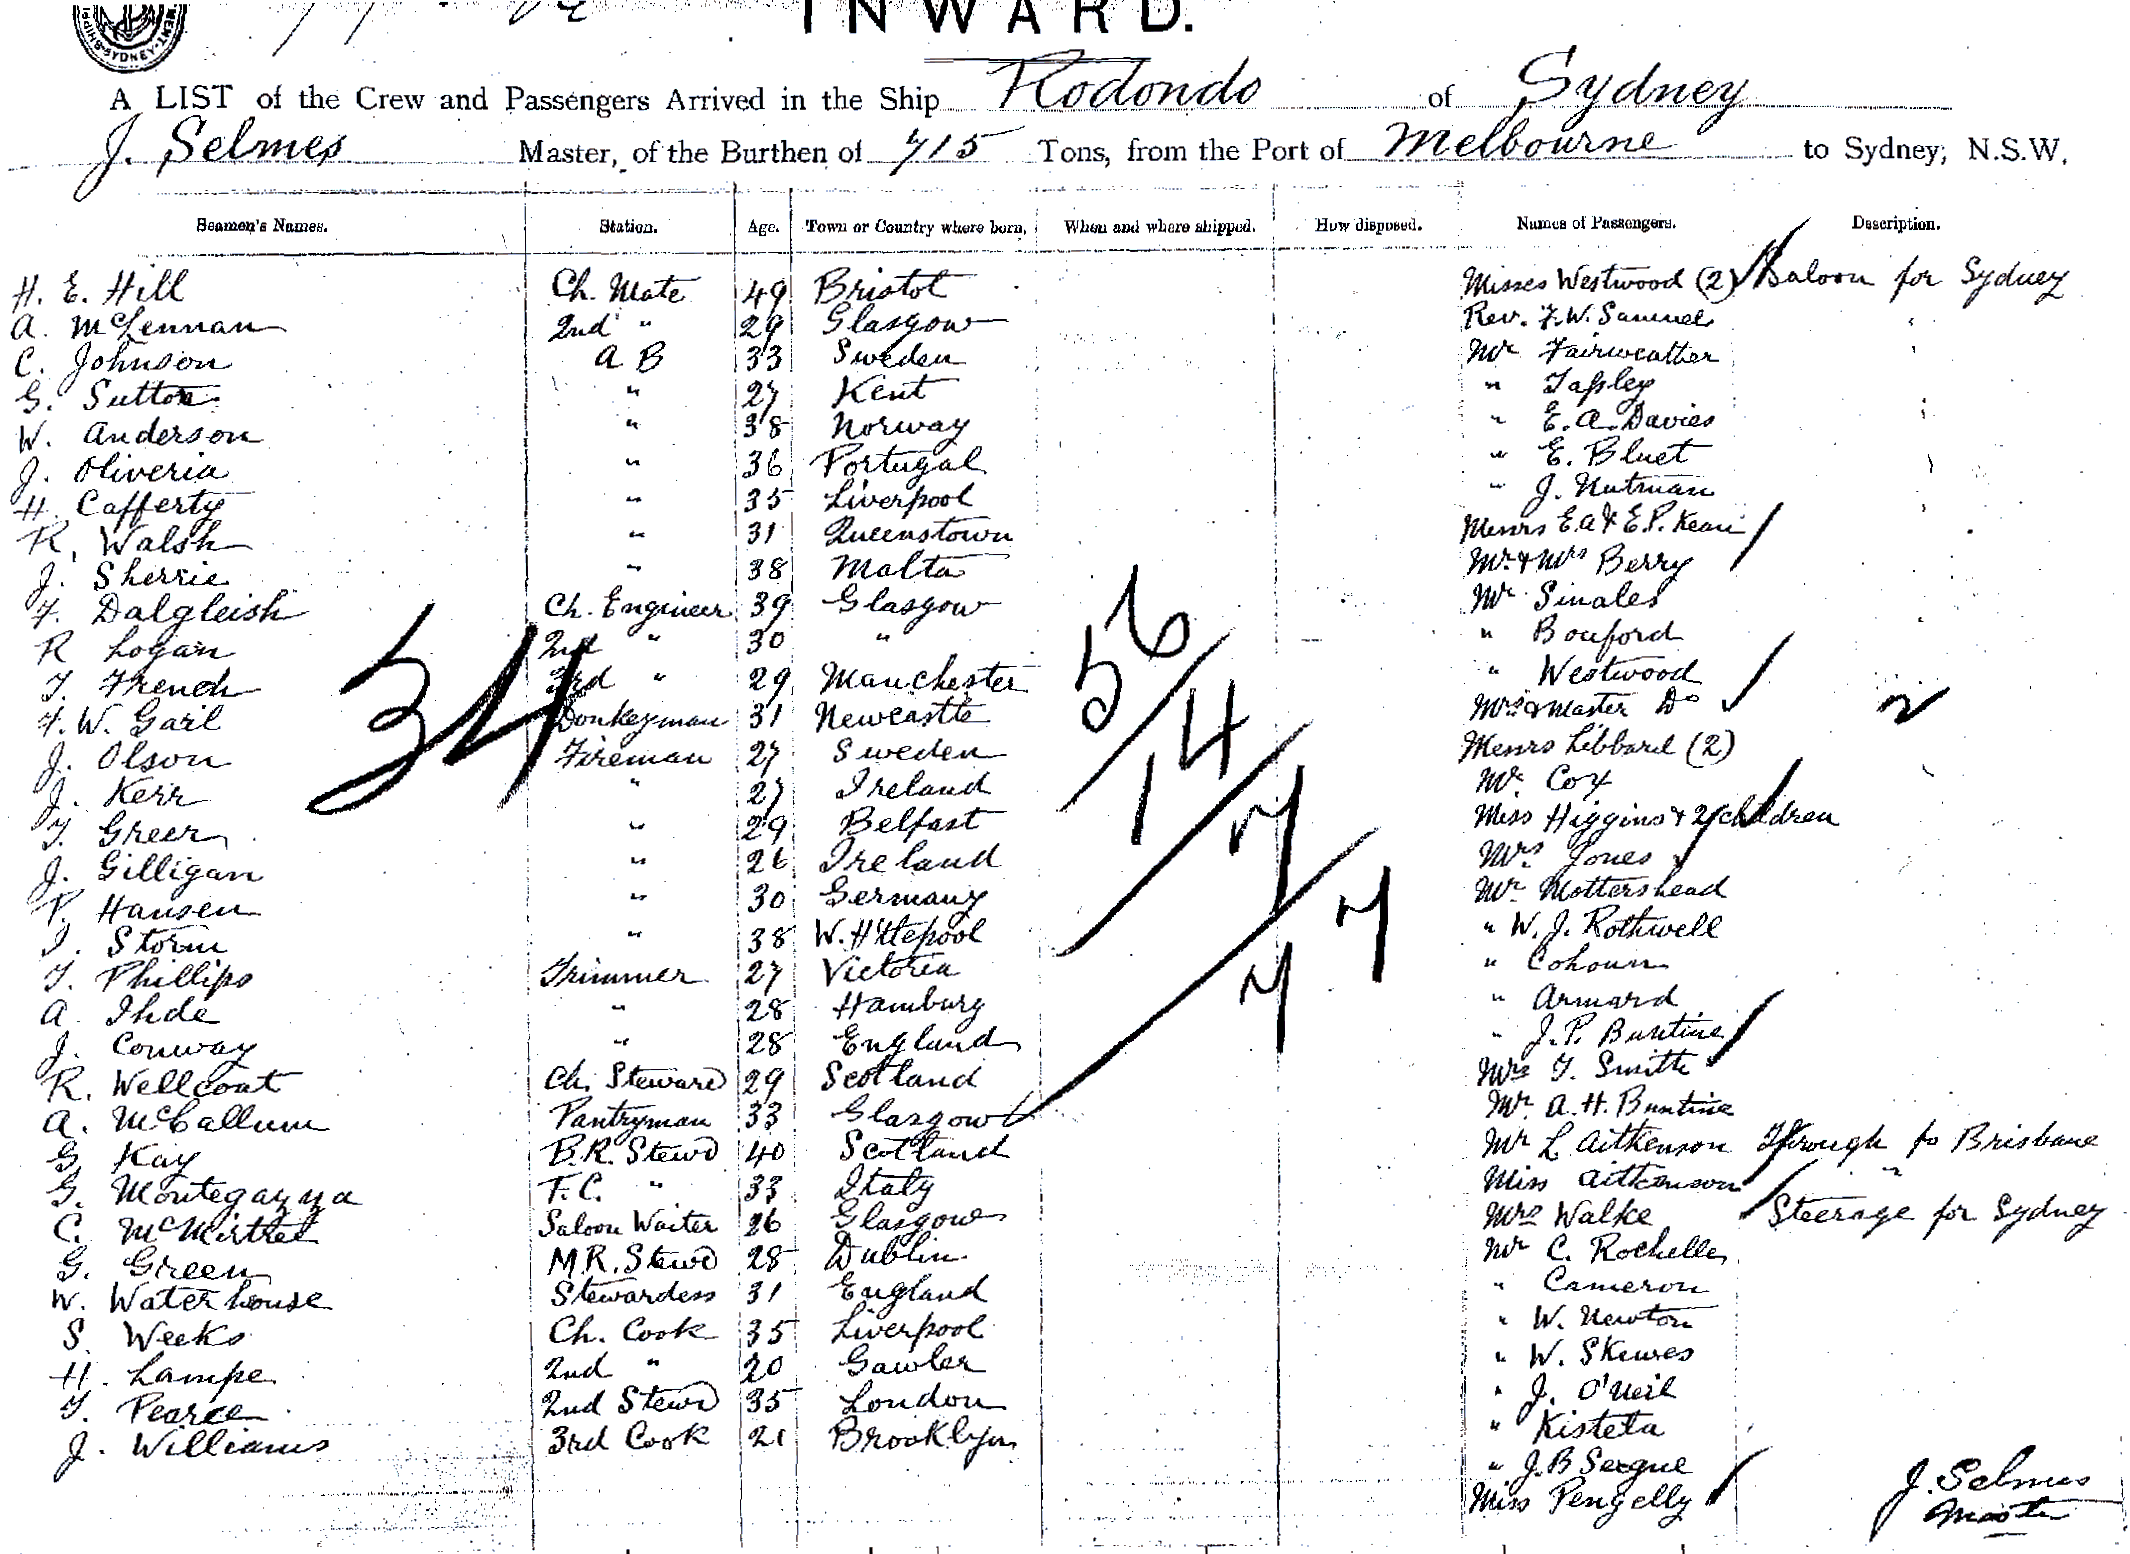 INWARD.
A LIST of the Crew and Passengers Arrived in the Ship Rodondo of Sydney
J. Selmes Master, of the Burthen of 715 Tons, from the Port of Melbourne to Sydney, N.S.W.
Seamen's Names. Station. Age. Town or Country where born. When and where shipped. How disposed. Names of Passengers. Description.
H. E. Hill Ch. Mate 49 Bristol Misses Westwood (2) Saloon for Sydney
A. McLennan 2nd " 29 Glasgow Rev. F.W. Samuels
C. Johnson A B 33 Sweden Mr Fairweather
G. Sutton " 27 Kent " Tapley
W. Anderson " 38 Norway " E. A. Davies
J. Oliveria " 36 Portugal " E. Bluet
H. Cafferty " 35 Liverpool " J. Nutman
R. Walsh " 31 Queenstown Messrs E.A & E.P. Kean
J. Sherrie " 38 Malta Mr & Mrs Berry
F. Dalgleish Ch. Engineer 39 Glasgow Mr Sinales
R Logan 2nd " 30 " " Bonford
T. French 3rd " 29 Manchester " Westwood
F. W. Gail Donkeyman 31 Newcastle Mrs & Master Do 2
J. Olson Fireman 27 Sweden Messrs Libbard (2)
J. Kerr " 27 Ireland Mr Cox
T. Greer " 29 Belfast Miss Higgins & 2 children
J. Gilligan " 26 Ireland Mrs Jones
P. Hansen " 30 Germany Mr Mottershead
J. Storm " 38 W. H'tlepool " W. J. Rothwell
T. Phillips Trimmer 27 Victoria " Cohoun
A. Ihde " 28 Hamburg " Armard
J. Conway " 28 England " J. P. Buntine
R. Wellcoat Ch. Steward 29 Scotland Mrs T. Smith
A. McCallum Pantryman 33 Glasgow Mr A. H. Buntine
G. Kay B.R. Stewd 40 Scotland Mr L Aitkenson Through to Brisbane
G. Montegazza F.C. " 33 Italy Miss Aitkenson "
C. McMirthet Saloon Waiter 26 Glasgow Mrs Walke Steerage for Sydney
G. Green M.R. Stewd 28 Dublin Mr C. Rochelle
W. Waterhouse Stewardess 31 England " Cameron
S. Weeks Ch. Cook 35 Liverpool " W. Newton
H. Lampe 2nd " 20 Gawler " W. Skewes
T. Pearce 2nd Stewd 35 London " J. O'Neil
J. Williams 3rd Cook 21 Brooklyn " Kisteta
" J. B Seegue
Miss Pengelly
J. Selmes
Master
34
56
14
7
7
7